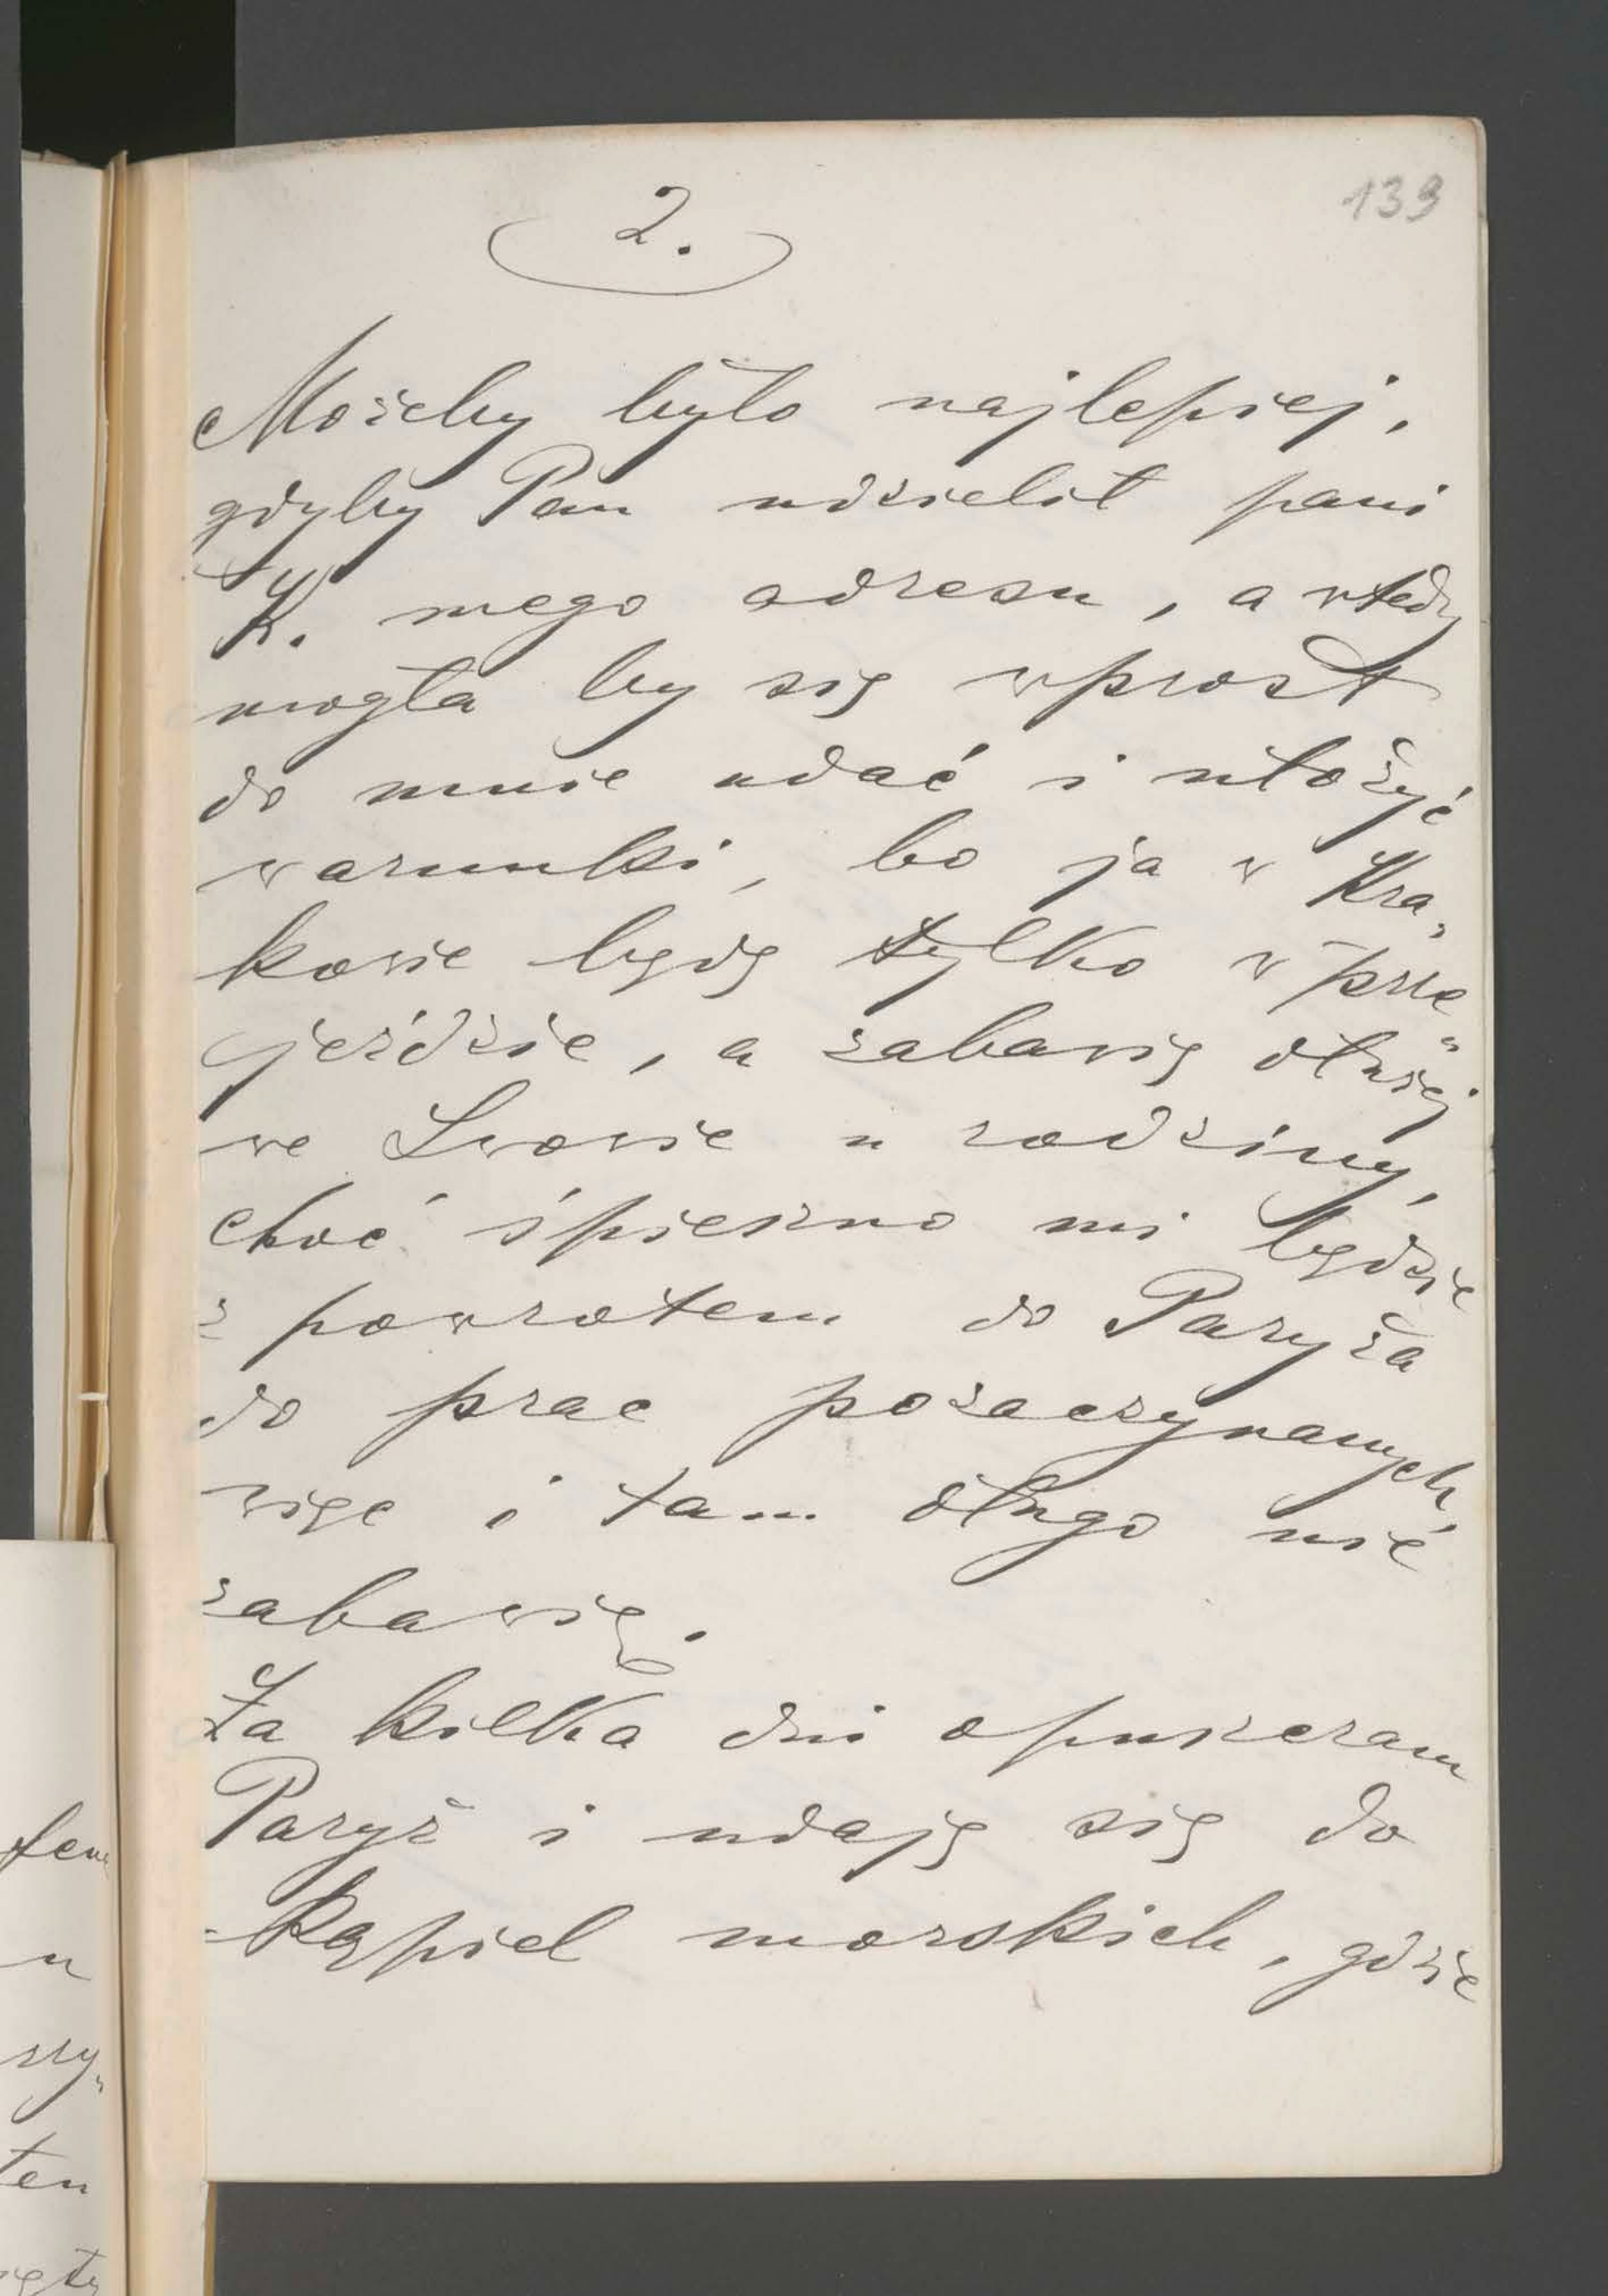 139
2.
Możeby było najlepiej,
gdyby Pan udzielił pani
K. mego adresu, a wtedy
mogła by się wprost
do mnie udać i ułożyć
warunki, bo ja w Kra„
kowie będę tylko w prze„
jeździe, a zabawię dłużej
we Lwowie u rodziny,
choć śpieszno mi będzie
z powrotem do Paryża
do prac pozaczynanych,
więc i tam długo nie
zabawię.
Za kilka dni opuszczam
Paryż i udaję się do
kąpiel morskich, gdzie
ten